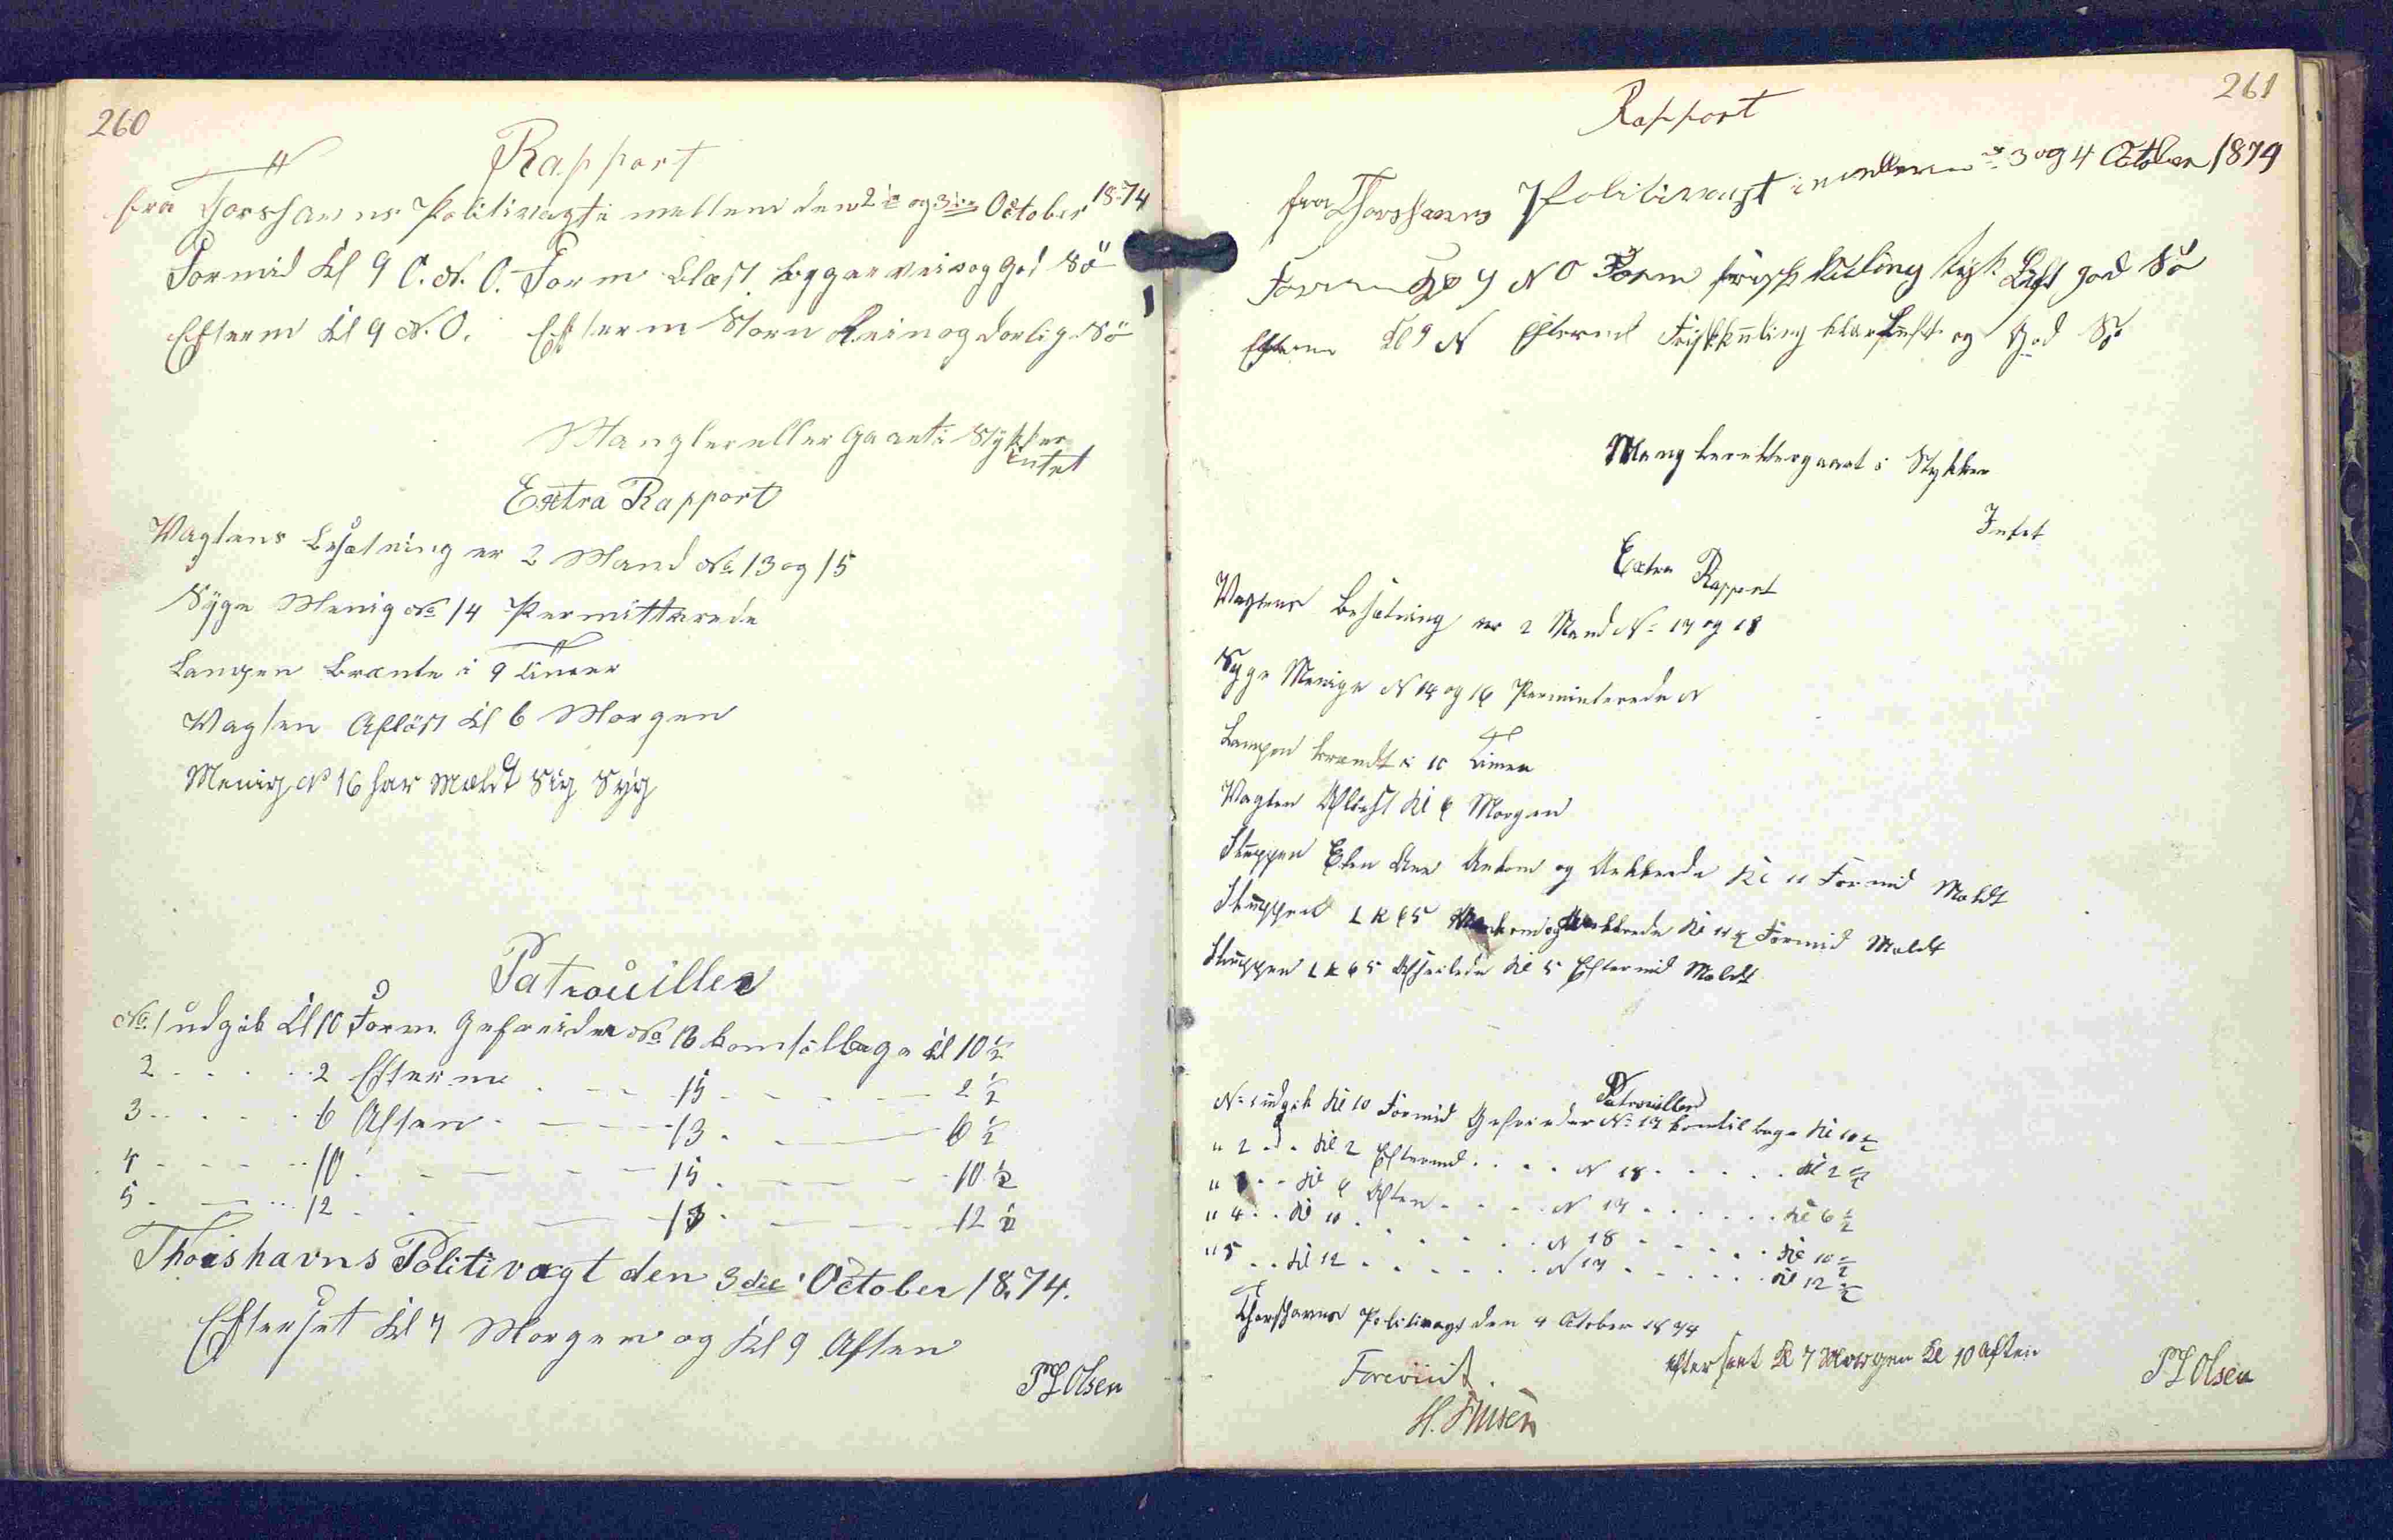 260
Rapport
fra Thorshavns Politivagt i mellem den 2de og 3die October 1874
Formid Kl 9 O.N.O. Form Blæst bygeveir og god Sö
Efterm Kl 9 N.O. Efterm Storm Rein og dorlig Sö
Mangler eller gaaet i Stÿkker
intet
Extra Rapport
Vagtens Besætning er 2 Mand No 13 og 15
Sÿge Menig No 14 Permitterede
Lampen brænte i 9 timer
Vagten Aflöst Kl 6 Morgen
Menig No 16 har Mældt Sig Sÿg
Patrouiller
No. 1 udgik Kl 10 Form. Gefreider No 13 kom tilbage Kl 10 1/2
2 2 Efterm 15 2 1/2
3 6 Aften 13 6 1/2
4 10 15 10 1/2
5 12 13 12 1/2
Thorshavns Politivagt den 3die October 1874.
Efterset Kl 7 Morgen og Kl 9 Aften
P L Olsen
261
Rapport
fra Thorshavns Politivagt imellem 3 og 4 October 1874
Form Kl 9 NO Form frisk Kuling tyk Luft god Sö
Efterm Kl 9 N Eftermd Frisk kuling klar Luft og God Sö
Mangler eller gaaet i Stykker
Intet
Extra Rapport
Vagtens Besætning er 2 Mand No 17 og 18
Syge Menige N 14 og 16 Permitterede N
Lampen brændt i 10 Timer
Vagten Aflöst Kl 6 Morgen
Sluppen Ankom og Ankrede Kl 11 Formid Meldt
Sluppen L K 65 Ankom og Ankrede Kl 11 1/2 Formid Meldt
Sluppen L K 65 Afseilede Kl 5 Eftermid Meldt
Patrouiller
No 1 udgik Kl 10 Formid Gefreider No 17 kom tilbage Kl 10 1/2
" 2 Kl 2 Eftermd N 18 Kl 2 1/2
" 3 Kl 6 Aften N 17 Kl 6 1/2
" 4 Kl 10 N 18 Kl 10 1/2
" 5 Kl 12 N 17 Kl 12 1/2
Thorshavns Politivagt den 4 October 1874
Efterseet Kl 7 Morgen Kl 10 Aften
P L Olsen
Foreviist.